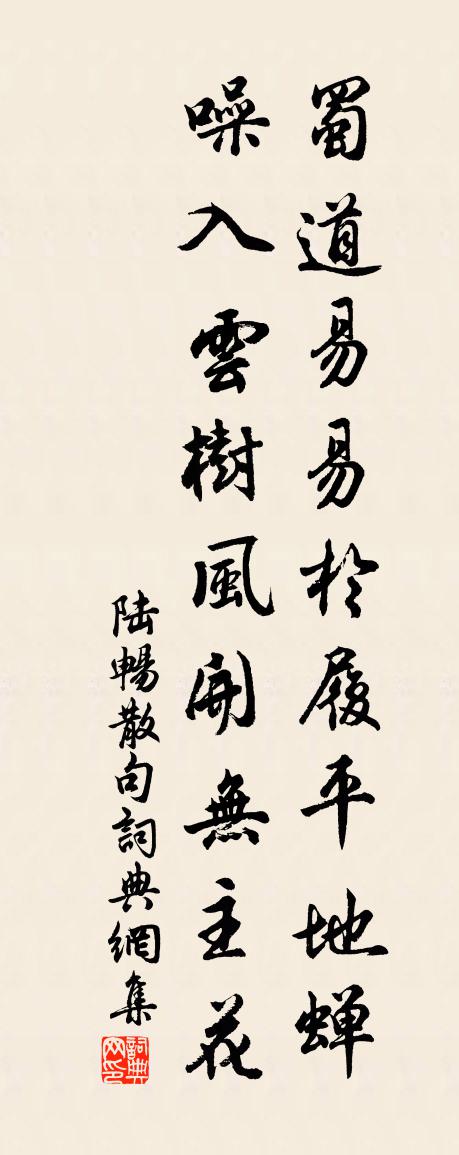 蜀道易易於履平地蝉
噪入雲樹風開無主花
陆暢散句詞典網集
詞典网印